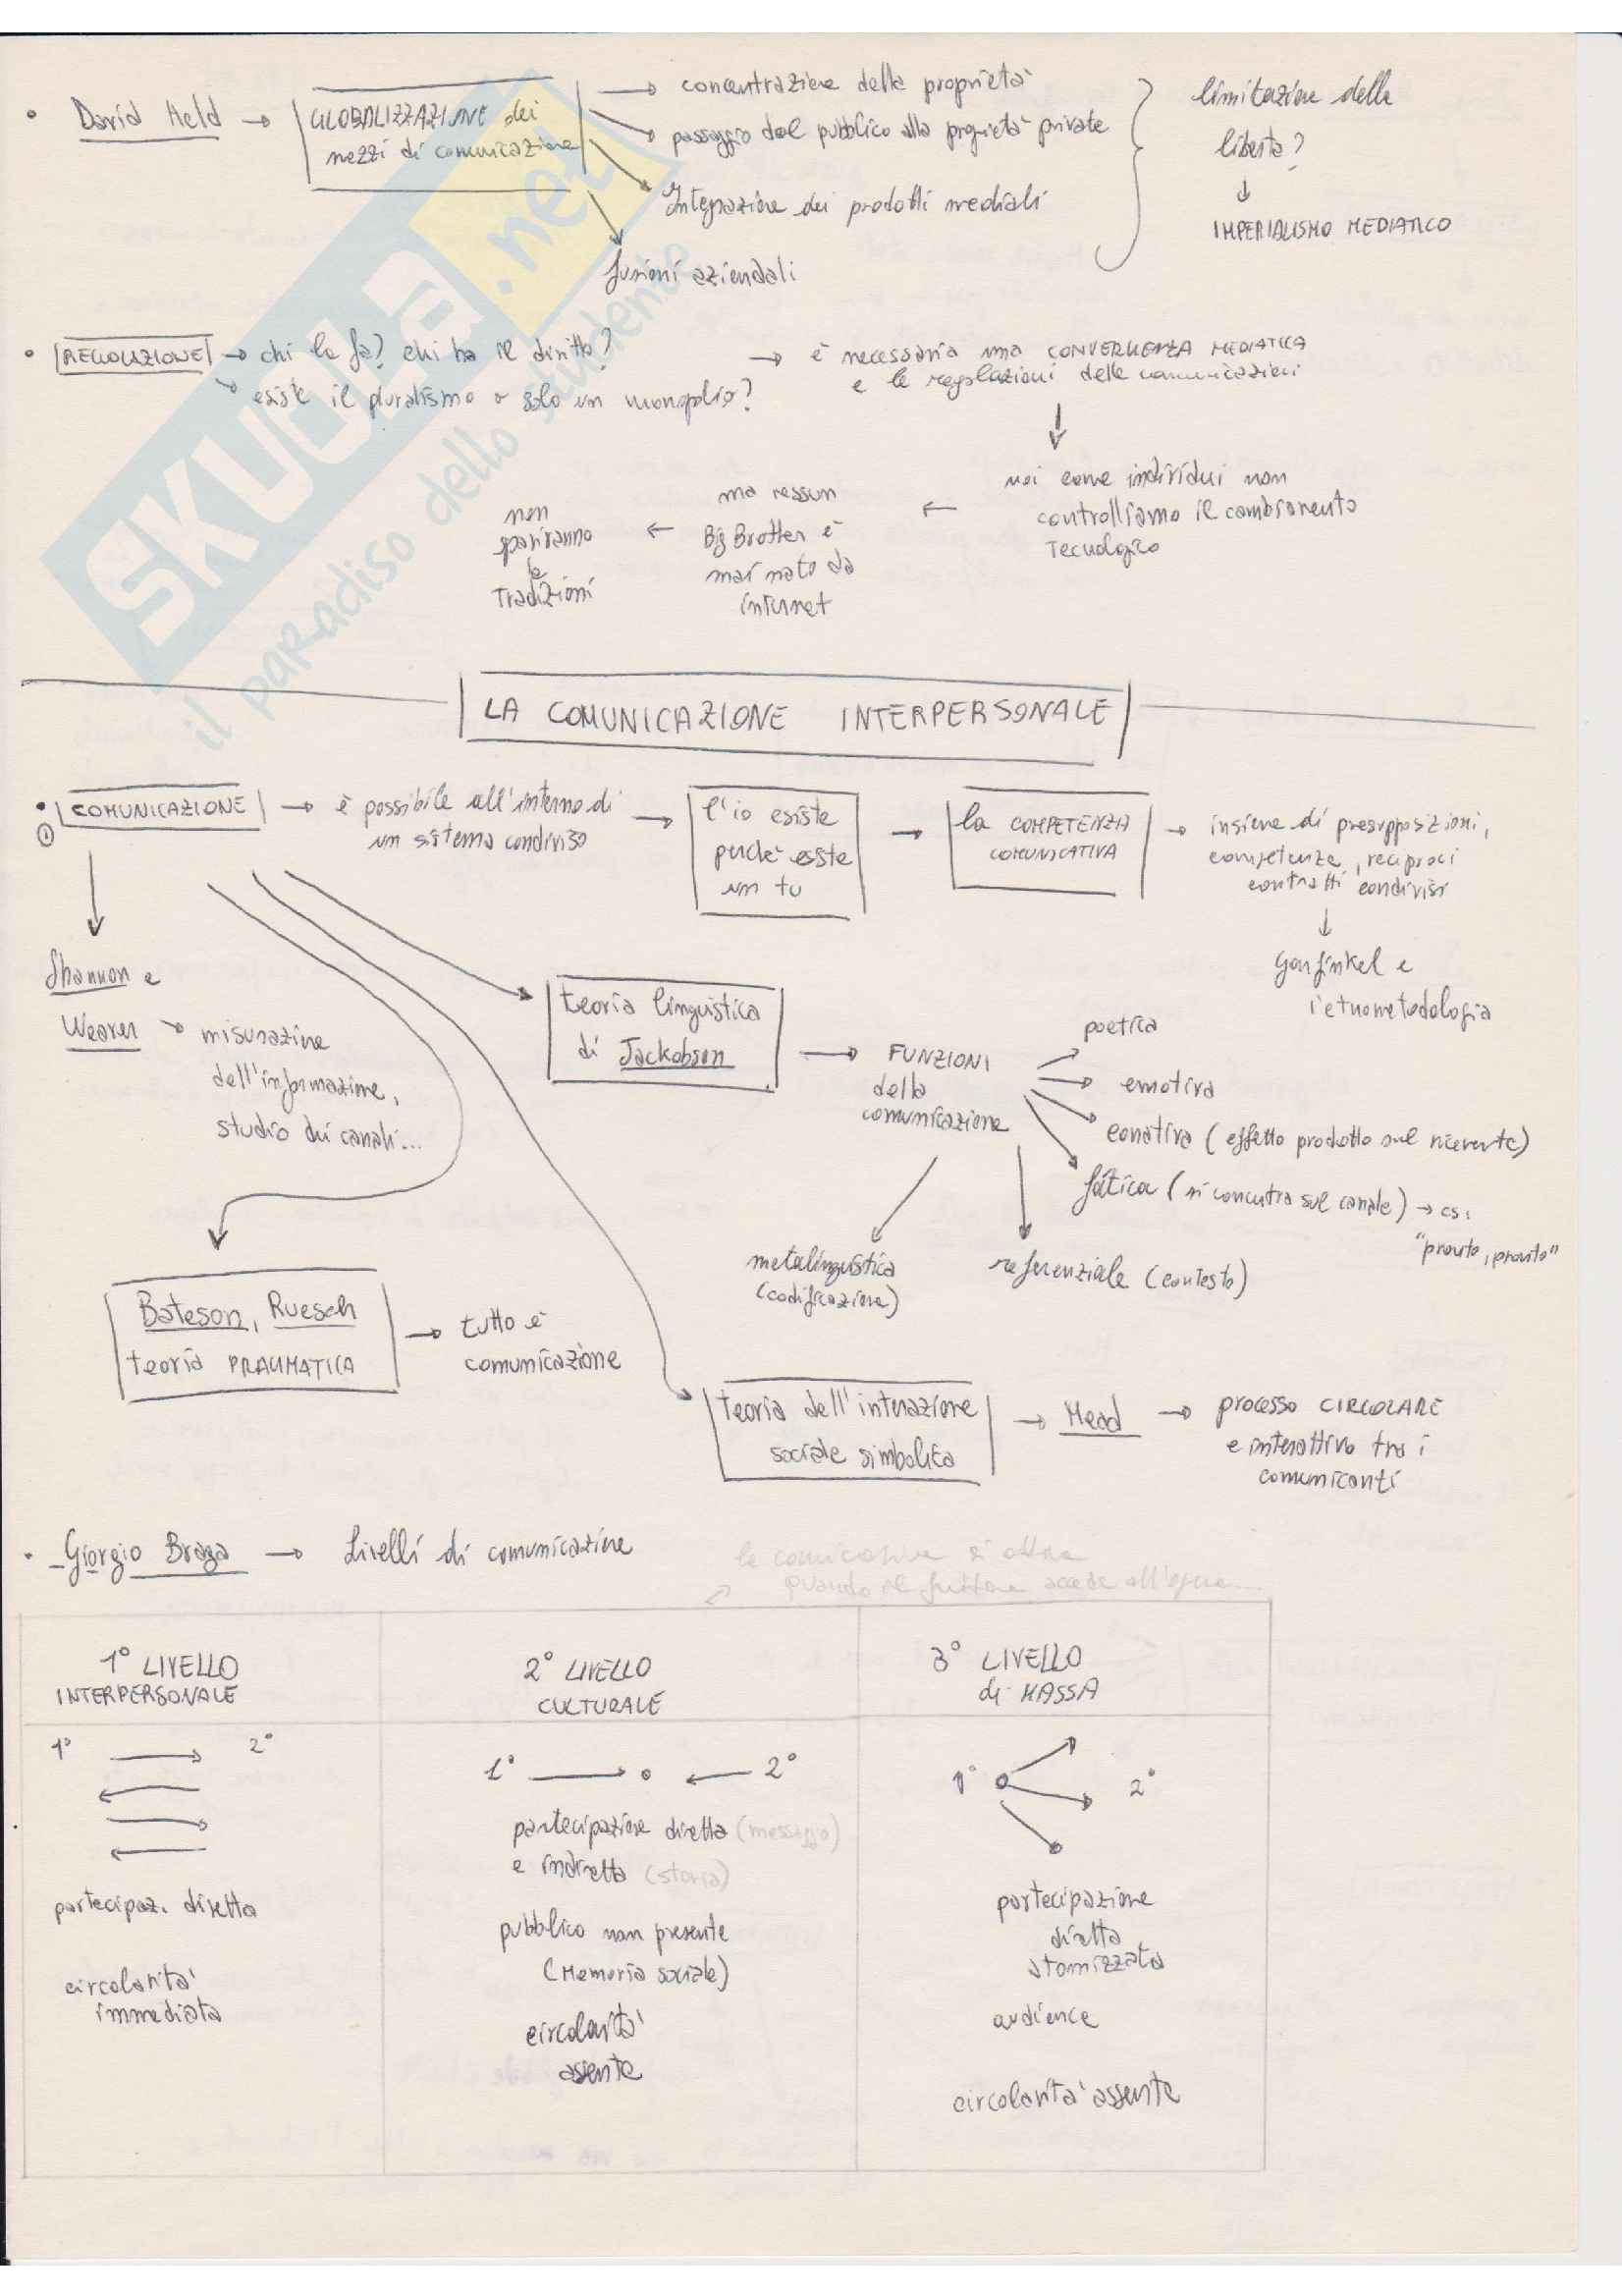 David Held →
GLOBALIZZAZIONE dei
mezzi di comunicazione
→ concentrazione della proprietà
passaggio dal pubblico alla proprietà private
Integrazione dei prodotti mediali
fusioni aziendali
limitazione della
libertà?
↓
IMPERIALISMO MEDIATICO
REGOLAZIONE → chi la fa? chi ha il diritto?
→ esiste il pluralismo o solo un monopolio?
→ è necessaria una CONVERGENZA MEDIATICA
e le regolazioni delle comunicazioni
noi come individui non
controlliamo il cambiamento
tecnologico
←
ma nessun
Big Brother è
mai nato da
internet
←
non
spariranno
le
tradizioni
SKUOLA.net
il paradiso dello studente
LA COMUNICAZIONE INTERPERSONALE
COMUNICAZIONE → è possibile all'interno di
un sistema condiviso
①
→ l'io esiste
perchè esiste
un tu
→ la COMPETENZA
COMUNICATIVA
→ insieme di presupposizioni,
competenze, reciproci
contratti condivisi
↓
Garfinkel e
l'etnometodologia
Shannon e
Weaver → misurazine
dell'informazione,
studio dei canali...
teoria linguistica
di Jackobson
→ FUNZIONI
della
comunicazione
poetica
emotiva
conativa (effetto prodotto sul ricevente)
fàtica (si concentra sul canale) → es:
"pronto, pronto"
referenziale (contesto)
metalinguistica
(codificazione)
Bateson, Ruesch
teoria PRAGMATICA
→ tutto è
comunicazione
teoria dell'interazione
sociale simbolica
→ Mead → processo CIRCOLARE
e interattivo tra i
comunicanti
Giorgio Braga → Livelli di comunicazione
si attiva
quando il fruitore accede all'opera...
1° LIVELLO
INTERPERSONALE
1° → 2°
partecipaz. diretta
circolarità
immediata
2° LIVELLO
CULTURALE
1° → ° ← 2°
partecipazione diretta (messaggio)
e indiretta (storia)
pubblico non presente
(Memoria sociale)
circolarità
assente
3° LIVELLO
di MASSA
1° 2°
partecipazione
diretta
atomizzata
audience
circolarità assente